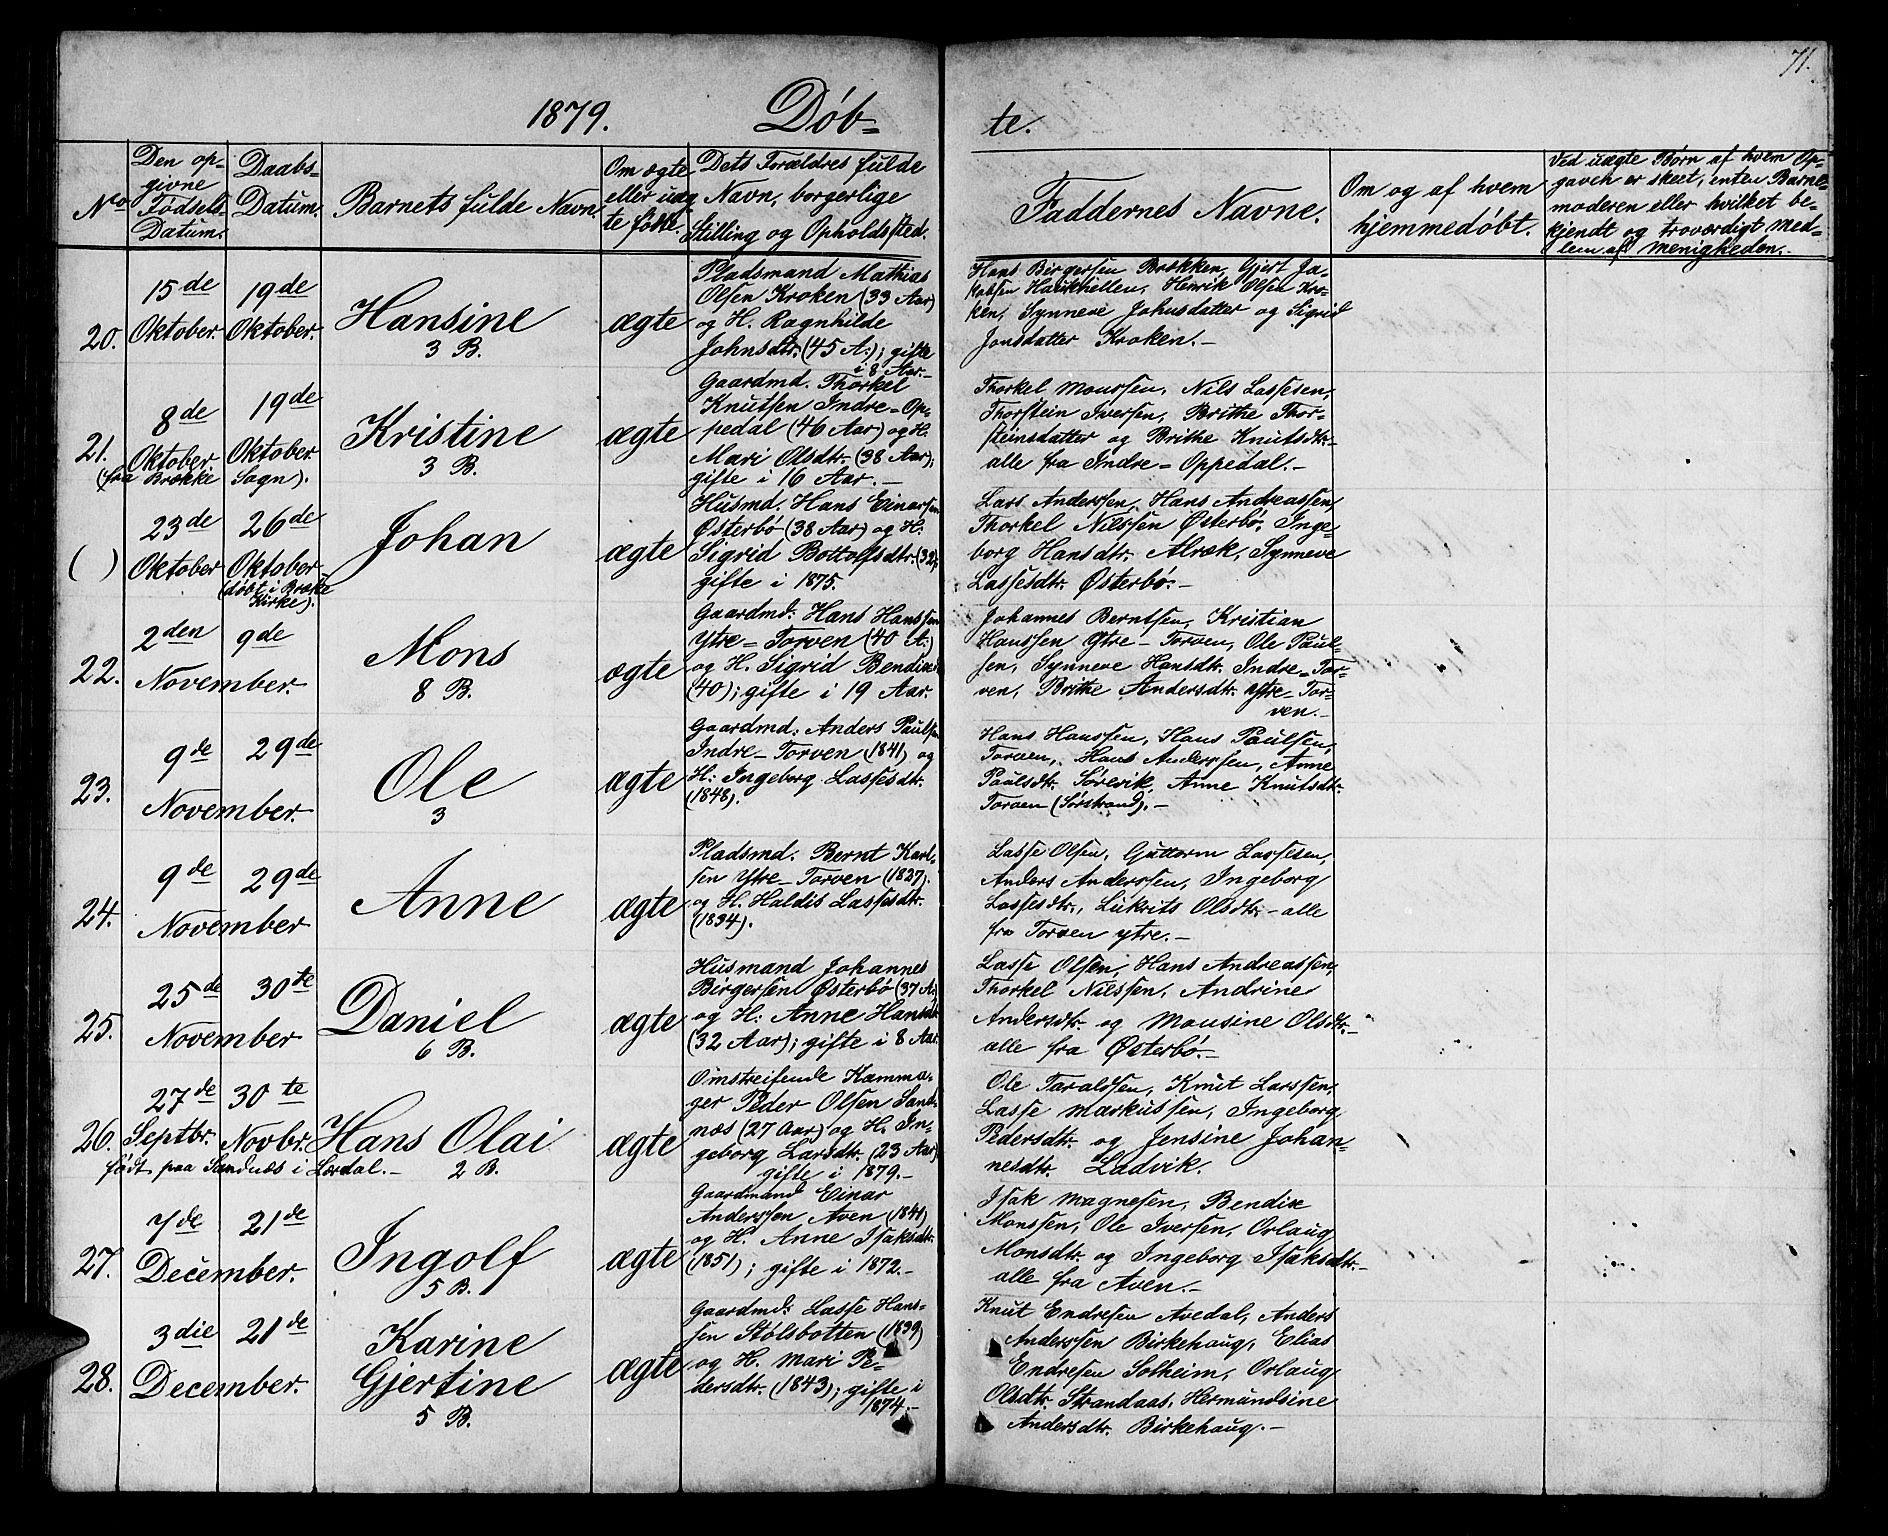 71.
1879. Døb=
te.
No
Den op-
givne
Fødsels
Datum.
Daabs-
Datum.
Barnets fulde Navn.
Om ægte
eller uæg
te fødte.
Dets Forældres fulde
Navn, borgerlige
Stilling og Opholdssted.
Faddernes Navne.
Om og af hvem
hjemmedøbt.
Ved uægte Børn af hvem Op-
gaven er skeet, enten Barne-
moderen eller hvilket be-
kjendt og troværdigt Med-
lem af Menigheden.
20.
15de
Oktober.
19de
Oktober.
Hansine
3 B.
ægte
Pladsmand Mathias
Olsen Kroken (33 Aar)
og H. Ragnhilde
Johnsdtr. (45 A.); gifte
i 8 Aar.-
Hans Birgersen Brækken, Gjert Ja-
kobsen Haukhellen, Henrik Olsen Kro-
ken, Synneve Johnsdatter og Sigrid
Jonsdatter Kroken.-
21.
8de
Oktober.
(fra Brække
19de
Oktober.
Sogn).
Kristine
3 B.
ægte
Gaardmd. Thorkel
Knutsen Indre=Op-
pedal (46 Aar) og H.
Mari Olsdtr. (38 Aar);
gifte i 16 Aar.-
Thorkel Monssen, Nils Lassesen,
Thorstein Iversen, Brithe Thor-
steinsdatter og Brithe Knutsdtr.
alle fra Indre=Oppedal.-
( )
23de
Oktober
26de
Oktober
(døbt i Brække
Kirke).
Johan
ægte
Husmd. Hans Einarsen
Østerbø (38 Aar) og H.
Sigrid Bottolfsdtr. (32);
gifte i 1875.
Lars Anderssen, Hans Andreassen,
Thorkel Nilssen Østerbø, Inge-
borg Hansdtr. Alræk, Synneve
Lassesdtr. Østerbø.-
22.
2den
9de
November.
Mons
8 B.
ægte
Gaardmd: Hans Hanssen
Ytre=Torven (40 A.)
og H. Sigrid Bendixd.
(40); gifte i 19 Aar.
Johannes Berntsen, Kristian
Hanssen Ytre-Torven, Ole Paul-
sen, Synneve Hansdtr. Indre=Tor-
ven, Brithe Andersdtr. Ytre-Tor-
ven.-
23.
9de
29de
November.
Ole
3
ægte
Gaardmd: Anders Paulsen
Indre-Torven (1841) og
H: Ingeborg Lassesdtr.
(1848).
Hans Hanssen, Hans Paulsen,
Torven, Hans Anderssen, Anne
Paulsdtr. Sørevik, Anne Knutsdtr.
Torven (Sørstrand).-
24.
9de
29de
November
Anne
ægte
Pladsmd. Bernt Karl-
sen Ytre-Torven (1827).
og H. Haldis Lassesdtr.
(1834).
Lasse Olsen, Guttorm Lassesen,
Anders Anderssen, Ingeborg
Lassesdtr., Lukrits Olsdtr.-alle
fra Torven ytre.-
25.
25de
30te
November
Daniel
6 B.
ægte
Husmand Johannes
Birgersen Østerbø (37 A.)
og H: Anne Hansdtr
(32 Aar); gifte i 8 Aar.
Lasse Olsen, Hans Andreassen,
Thorkel Nilssen, Andrine
Andersdtr. og Monsine Olsdtr.-
alle fra Østerbø.-
26.
27de
Septbr.
30te
Novbr.
født paa Sandnæs i Lærdal.-
Hans Olai
2 B.
ægte
Omstreifende Kamma-
ger Peder Olsen Sand-
næs (27 Aar) og H. In-
geborg Larsdtr. (23 Aar)
gifte i 1879.-
Ole Taraldsen, Knut Larssen,
Lasse Markussen, Ingeborg
Pedersdtr. og Jensine Johan-
nesdtr. Ladvik.
27.
7de
21de
December.
Ingolf
5 B.
ægte
Gaardmand Einar
Anderssen Aven (1841)
og H. Anne Isaksdtr.
(1851); gifte i 1872.-
Isak Magnesen, Bendix
Monssen, Ole Iversen, Orlaug
Monsdtr. og Ingeborg Isaksdtr.-
alle fra Aven.-
28.
3die
21de
December.
Karine
Gjertine
5 B.
ægte
Gaardmd: Lasse Hans-
sen Stølsbotten (1839)
og H. Mari Pe-
dersdtr. (1843); gifte i
1874.-
Knut Endresen Avedal, Anders
Anderssen Birkehaug, Elias
Endresen Solheim, Orlaug
Olsdtr. Strandaas, Hermundsine
Andersdtr. Birkehaug.-